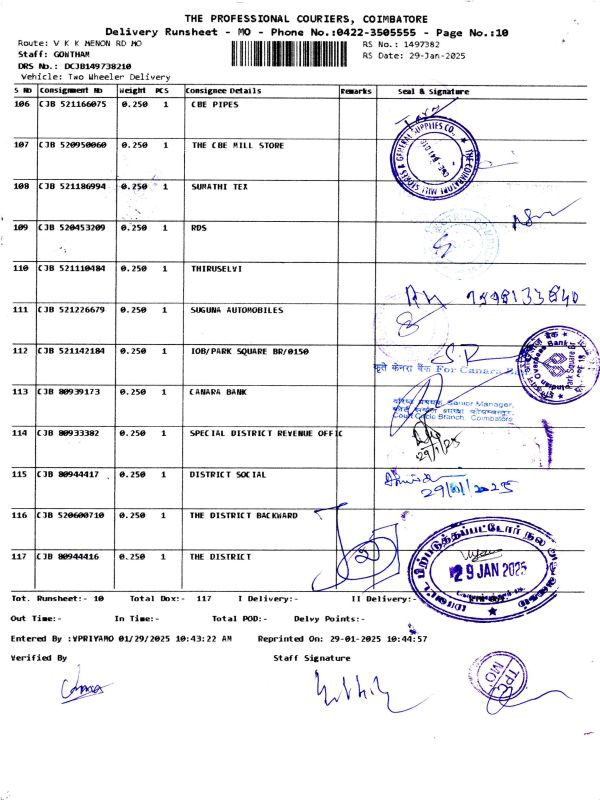 THE PROFESSIONAL COURIERS, COIMBATORE
Delivery Runsheet - MO - Phone No.:0422-3505555 - Page No.:10
Route: V K K MENON RD MO
RS No.: 1497382
Staff: GONTHAM
RS Date: 29-Jan-2025
DRS No.: DCJB149738210
Vehicle: Two Wheeler Delivery
S No Consignment No Weight PCS Consignee Details Remarks Seal & Signature
106 CJB 521166075 0.250 1 CBE PIPES
107 CJB 520950060 0.250 1 THE CBE MILL STORE
THE COIMBATORE MILL STORES & GENERAL SUPPLIES CO.,
108 CJB 521186994 0.250 1 SUMATHI TEX
109 CJB 520453209 0.250 1 RDS
110 CJB 521110484 0.250 1 THIRUSELVI
111 CJB 521226679 0.250 1 SUGUNA AUTOMOBILES
112 CJB 521142184 0.250 1 IOB/PARK SQUARE BR/0150
S.R
Indian Overseas Bank
Park Square Br
कृते केनरा बैंक For Canara Ba
113 CJB 80939173 0.250 1 CANARA BANK
Senior Manager,
Coimbatore
114 CJB 80933382 0.250 1 SPECIAL DISTRICT REVENUE OFFIC
29/1/25
115 CJB 80944417 0.250 1 DISTRICT SOCIAL
29/01/2025
116 CJB 520600710 0.250 1 THE DISTRICT BACKWARD
117 CJB 80944416 0.250 1 THE DISTRICT
29 JAN 2025
Tot. Runsheet:- 10 Total Dox:- 117 I Delivery:- II Delivery:-
Out Time:- In Time:- Total POD:- Delvy Points:-
Entered By :YPRIYAMO 01/29/2025 10:43:22 AM Reprinted On: 29-01-2025 10:44:57
Verified By Staff Signature
TPC
MO